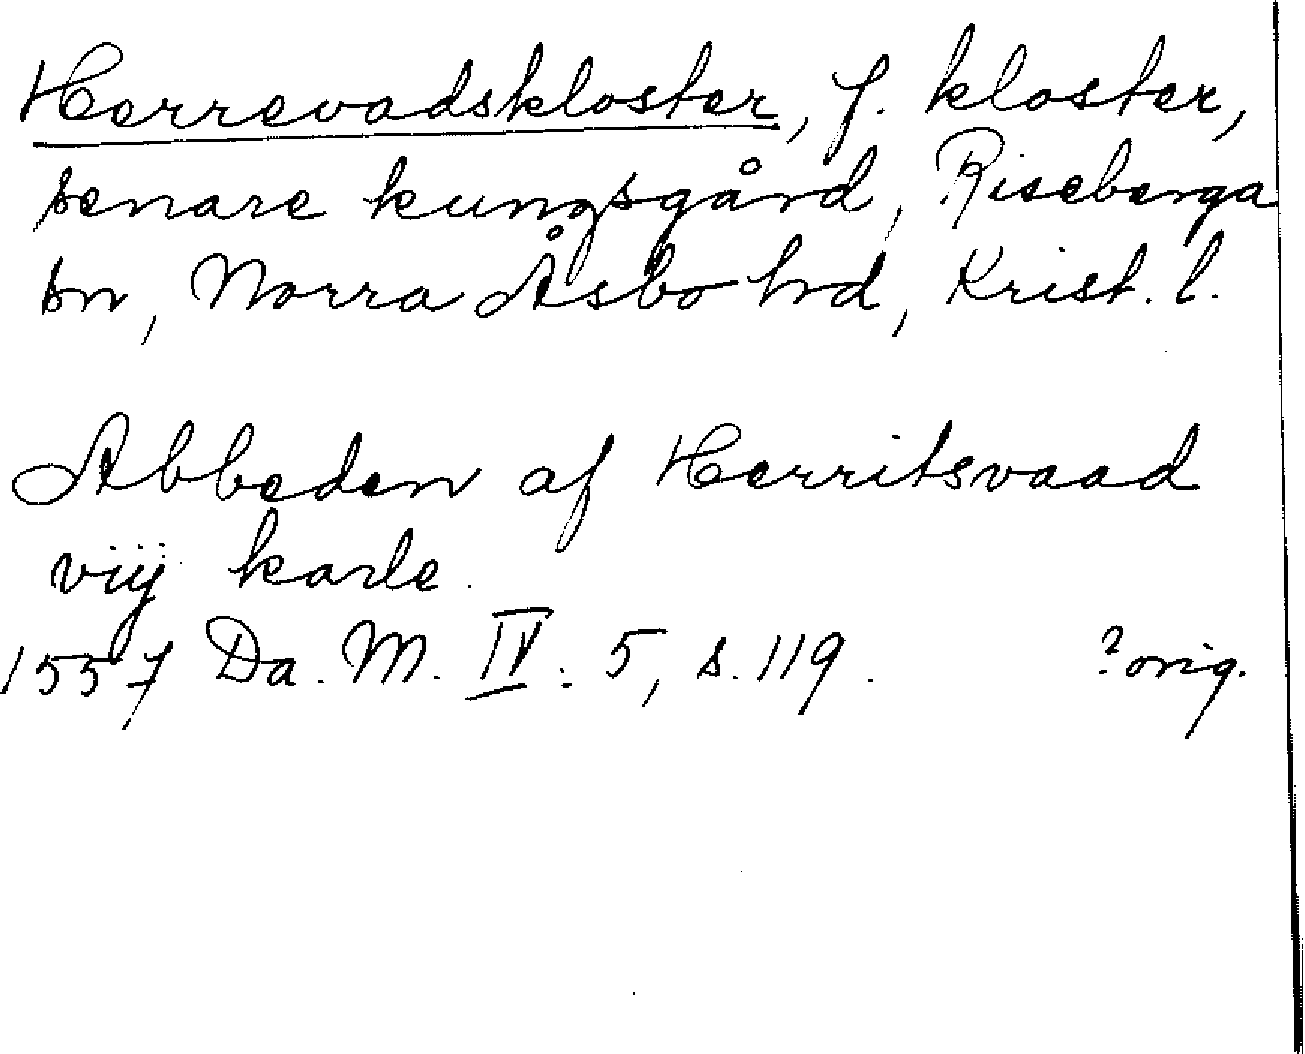 Herrevadskloster, f. kloster,
senare kungsgård, Riseberga
sn, Norra Åsbo hd, Krist. l.
Abbeden af Herritsvaad
viij karle.
1557 Da. M. IV: 5, s. 119. ? orig.